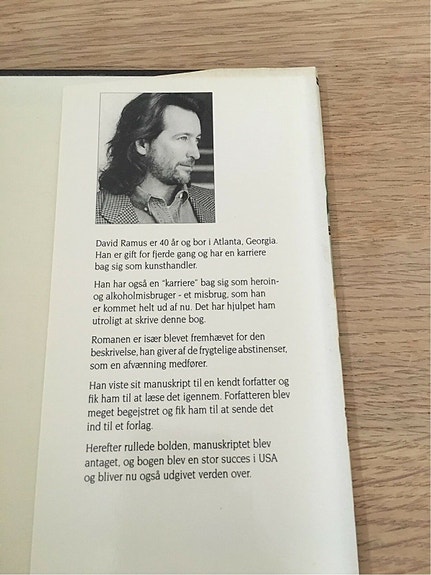 David Ramus er 40 år og bor i Atlanta, Georgia.
Han er gift for fjerde gang og har en karriere
bag sig som kunsthandler.
Han har også en "karriere" bag sig som heroin-
og alkoholmisbruger - et misbrug, som han
er kommet helt ud af nu. Det har hjulpet ham
utroligt at skrive denne bog.
Romanen er især blevet fremhævet for den
beskrivelse, han giver af de frygtelige abstinenser,
som en afvænning medfører.
Han viste sit manuskript til en kendt forfatter og
fik ham til at læse det igennem. Forfatteren blev
meget begejstret og fik ham til at sende det
ind til et forlag.
Herefter rullede bolden, manuskriptet blev
antaget, og bogen blev en stor succes i USA
og bliver nu også udgivet verden over.